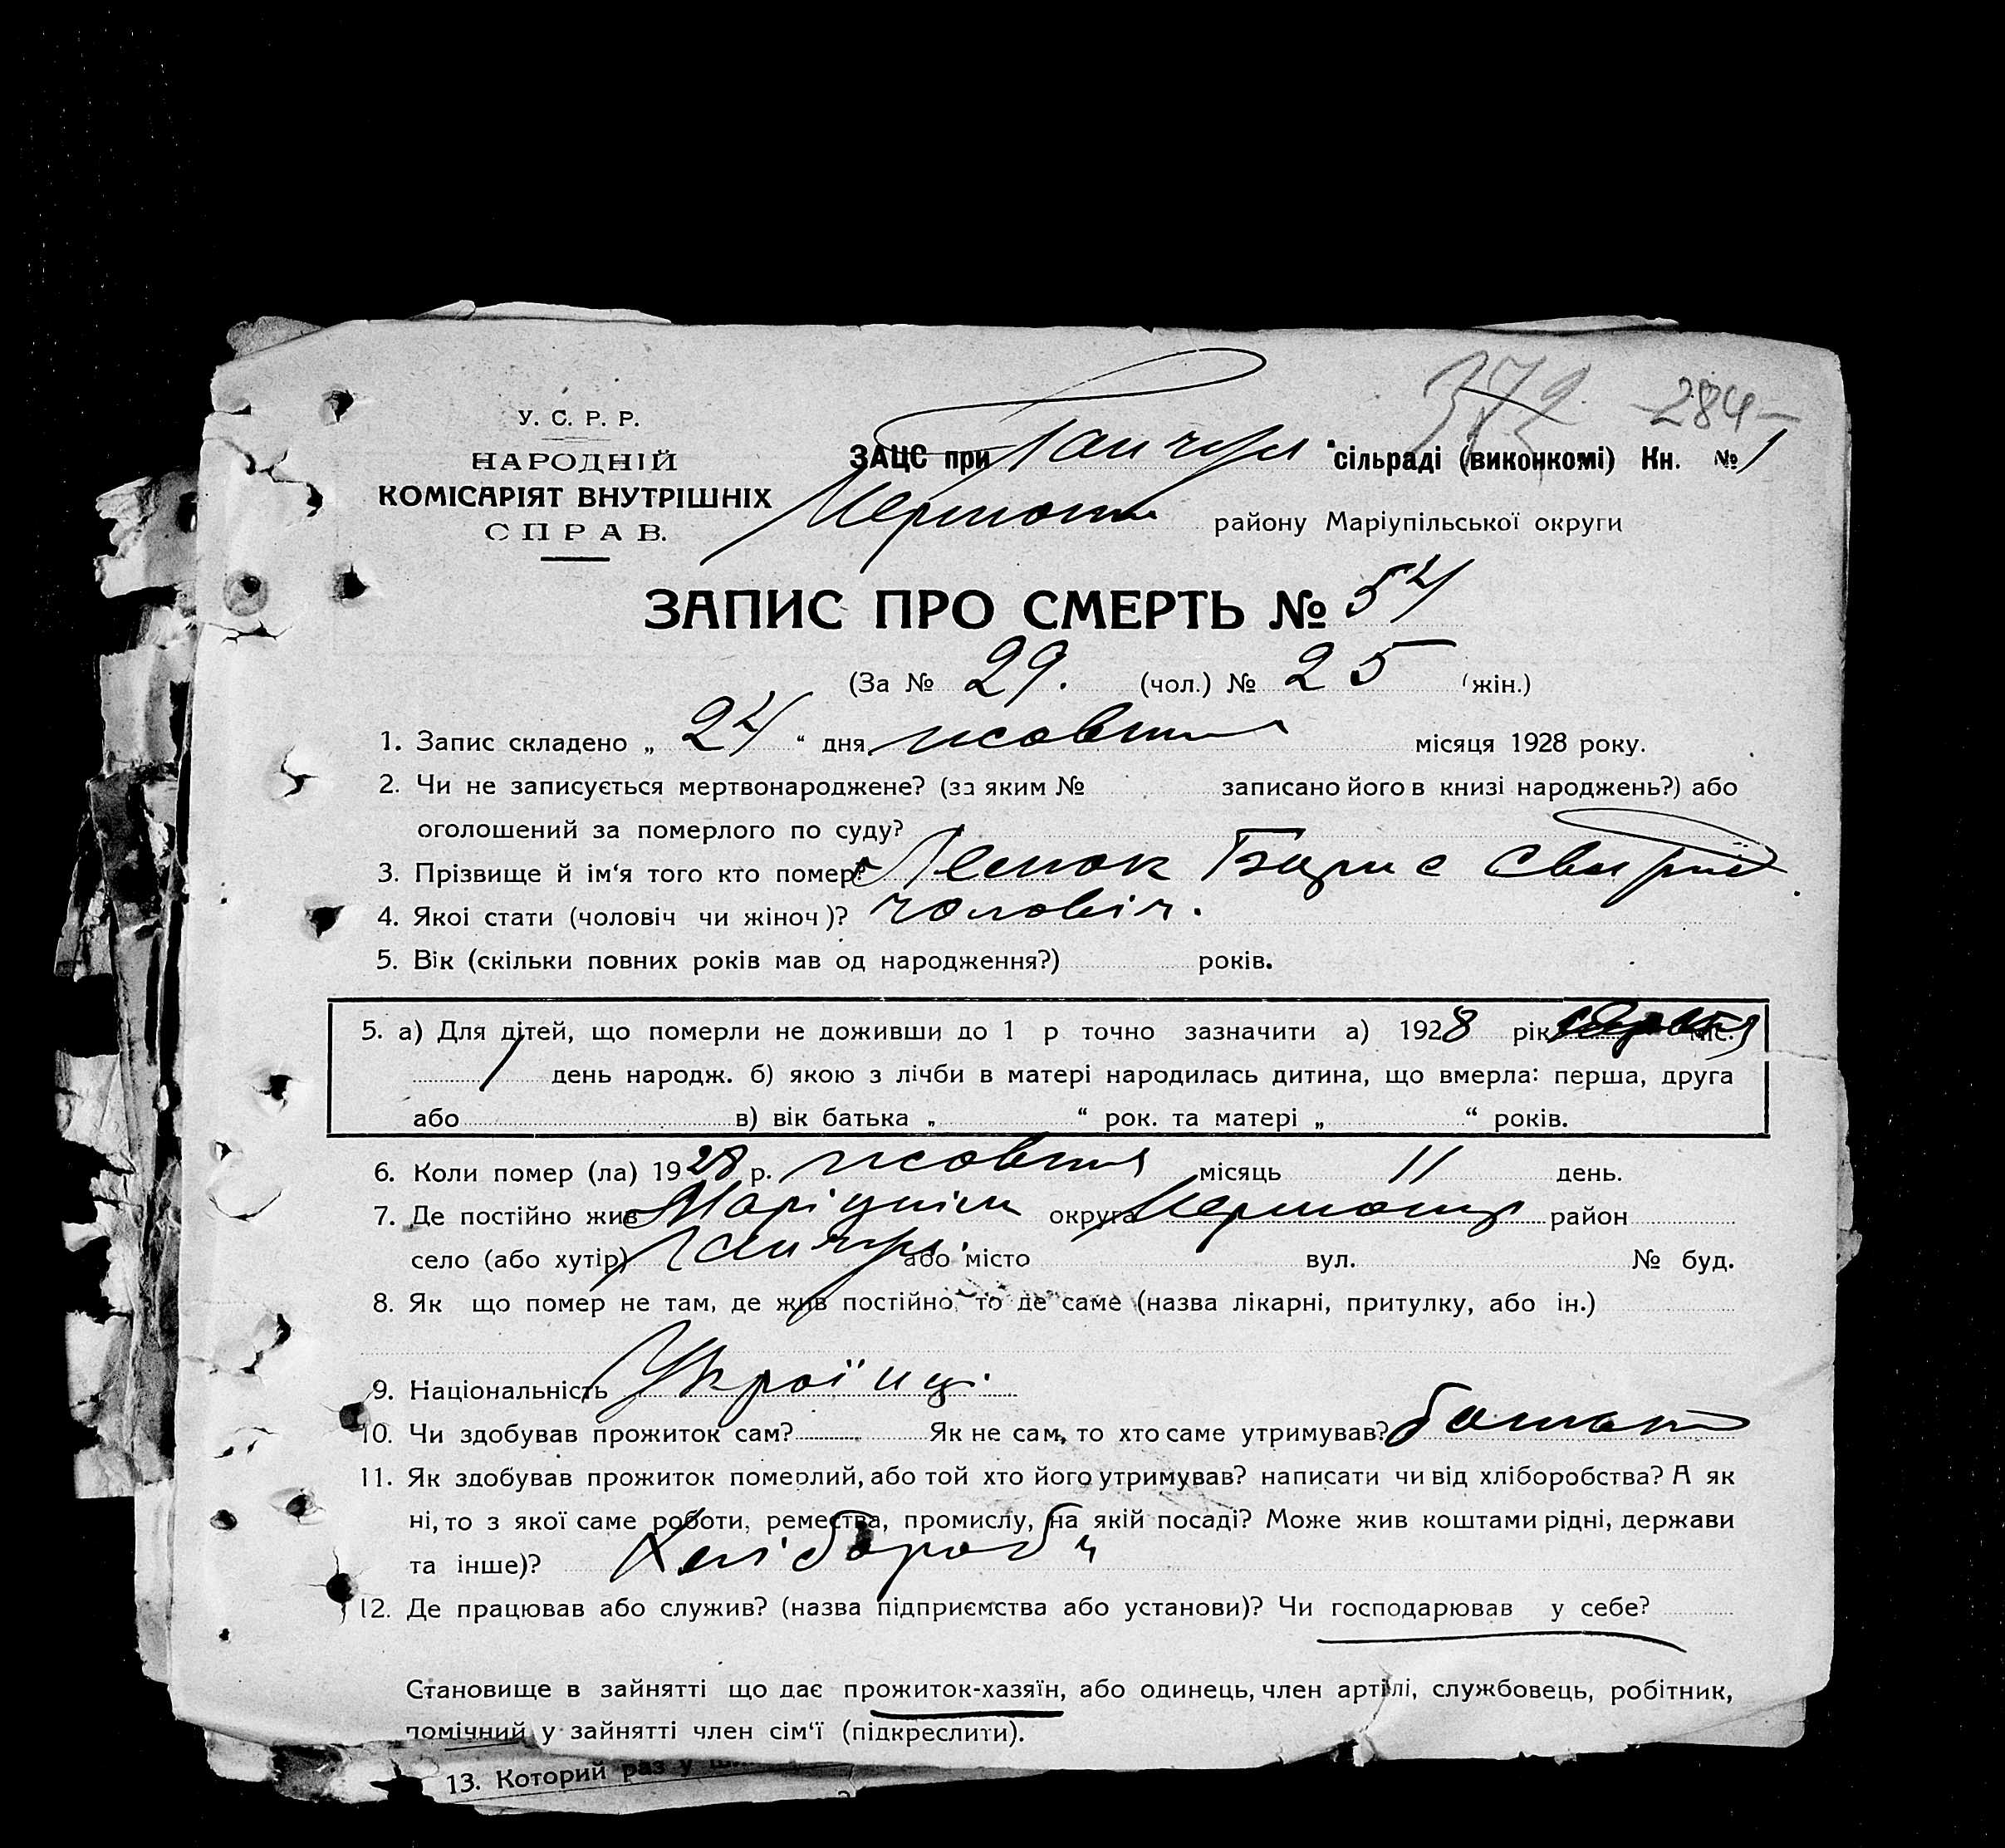 372 284
У. С. Р. Р.
НАРОДНІЙ
КОМІСАРІЯТ ВНУТРІШНІХ
СПРАВ.
ЗАЦС при сільраді (виконкомі) Кн. № 1
району Маріупільської округи
ЗАПИС ПРО СМЕРТЬ № 54
(За № 29. (чол.) № 25 (жін.)
1. Запис складено „ 24 “ дня жовтня місяця 1928 року.
2. Чи не записується мертвонароджене? (за яким № записано його в книзі народжень?) або
оголошений за померлого по суду?
3. Прізвище й ім‘я того кто помер? Борис
4. Якоі стати (чоловіч чи жіноч)? чоловіч.
5. Вік (скільки повних років мав од народження?) років.
5. а) Для дітей, що померли не доживши до 1 р точно зазначити а) 1928 рік міс.
1 день народж. б) якою з лічби в матері народилась дитина, що вмерла: перша, друга
або в) вік батька „ “ рок. та матері „ “ років.
6. Коли помер (ла) 1928 р. жовтня місяць 11 день.
7. Де постійно жив Маріупіль округа район
село (або хутір) або місто вул. № буд.
8. Як що помер не там, де жив постійно, то де саме (назва лікарні, притулку, або ін.)
9. Національність Україиці.
10. Чи здобував прожиток сам? Як не сам, то хто саме утримував? батько
11. Як здобував прожиток померлий, або той хто його утримував? написати чи від хліборобства? А як
ні, то з якої саме роботи, ремества, промислу, на якій посаді? Може жив коштами рідні, держави
та інше)?
12. Де працював або служив? (назва підприємства або установи)? Чи господарював у себе?
Становище в зайнятті що дає прожиток-хазяїн, або одинець, член артілі, службовець, робітник,
помічний у зайнятті член сім‘ї (підкреслити).
13. Которий раз у